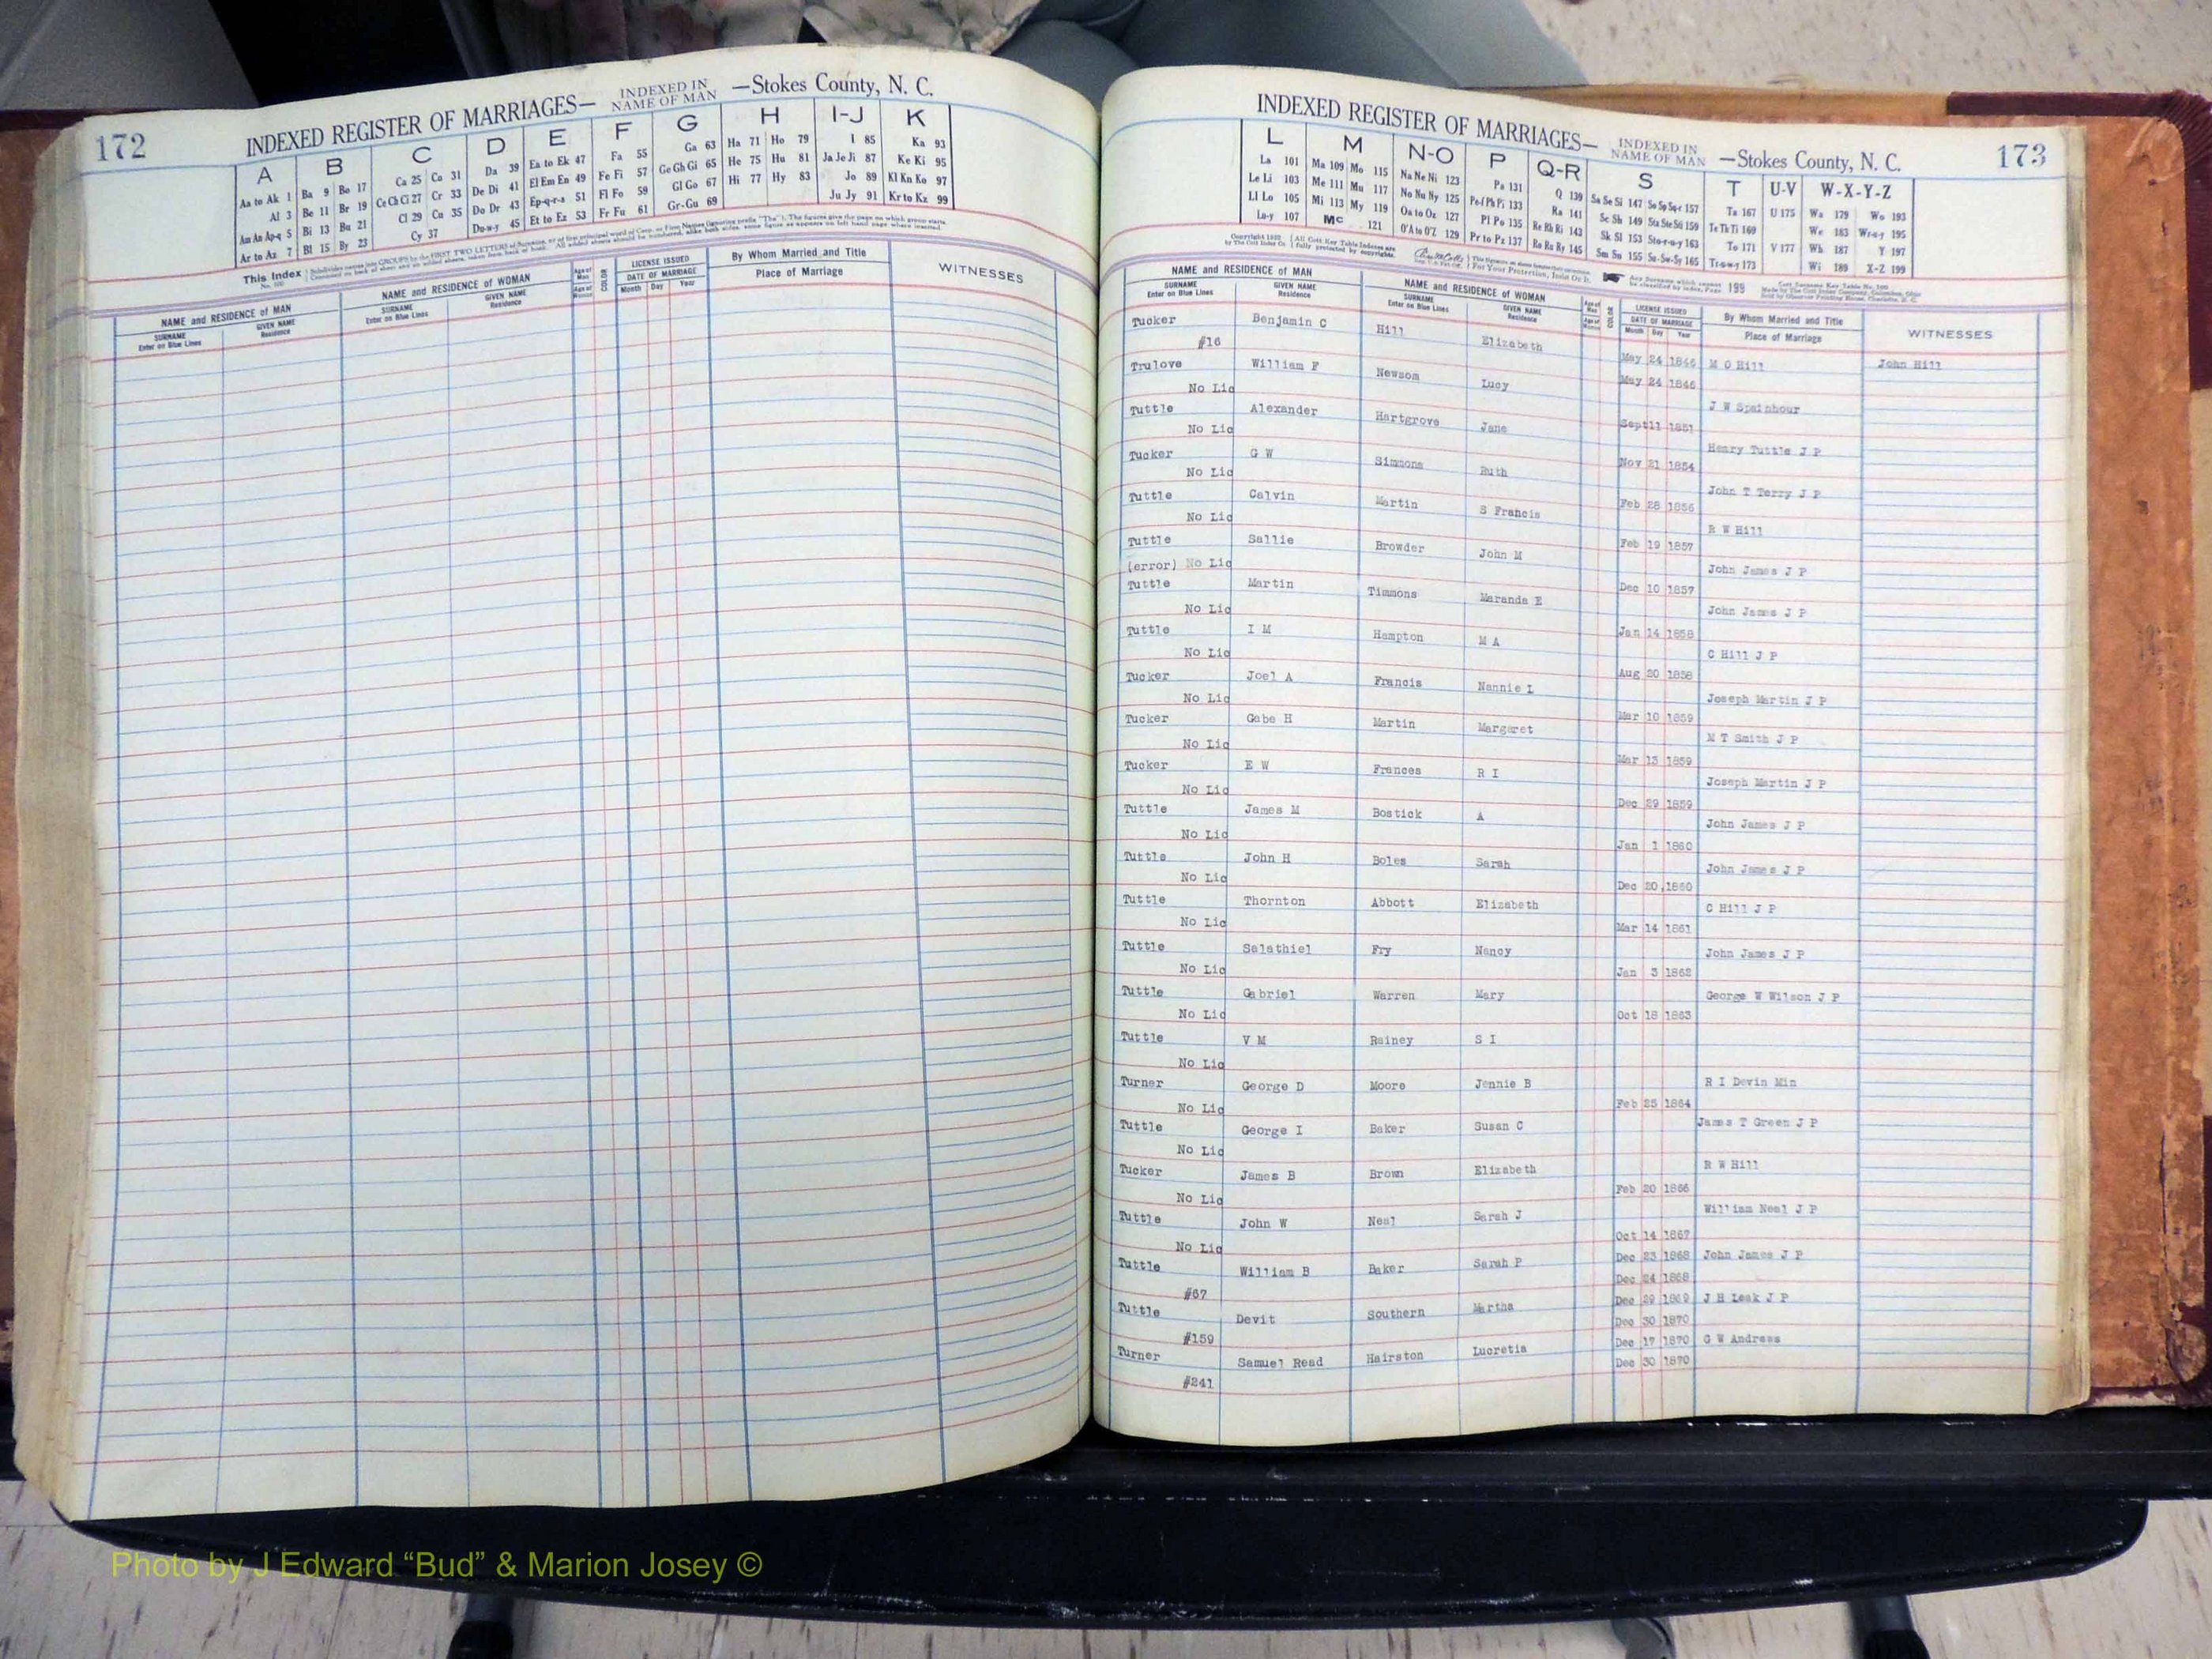 172
INDEXED REGISTER OF MARRIAGES— INDEXED IN NAME OF MAN —Stokes County, N. C.
A B C D E F G H I-J K
Aa to Ak 1 Ba 9 Bo 17 Ca 25 Co 31 Da 39 Ea to Ek 47 Fa 55 Ga 63 Ha 71 Ho 79 I 85 Ka 93
Al 3 Be 11 Br 19 Ce Ch Ci 27 Cr 33 De Di 41 El Em En 49 Fe Fi 57 Ge Gh Gi 65 He 75 Hu 81 Ja Je Ji 87 Ke Ki 95
Am An Ap-q 5 Bi 13 Bu 21 Cl 29 Cu 35 Do Dr 43 Ep-q-r-s 51 Fl Fo 59 Gl Go 67 Hi 77 Hy 83 Jo 89 Kl Kn Ko 97
Ar to Az 7 Bl 15 By 23 Cy 37 Du-w-y 45 Et to Ez 53 Fr Fu 61 Gr-Gu 69 Ju Jy 91 Kr to Kz 99
This Index
NAME and RESIDENCE OF MAN NAME and RESIDENCE OF WOMAN Age of Man Age of Woman COLOR LICENSE ISSUED DATE OF MARRIAGE By Whom Married and Title Place of Marriage WITNESSES
SURNAME Enter on Blue Lines GIVEN NAME Residence SURNAME Enter on Blue Lines GIVEN NAME Residence Month Day Year
173
INDEXED REGISTER OF MARRIAGES— INDEXED IN NAME OF MAN —Stokes County, N. C.
L M N-O P Q-R S T U-V W-X-Y-Z
La 101 Ma 109 Mo 115 Na Ne Ni 123 Pa 131 Q 139 Sa Se Si 147 So Sp Sq-r 157 Ta 167 U 175 Wa 179 Wo 193
Le Li 103 Me 111 Mu 117 No Nu Ny 125 Pe-f Ph Pi 133 Ra 141 Sc Sh 149 Sta Ste Sti 159 Te Th Ti 169 We 183 Wr-e-y 195
Ll Lo 105 Mi 113 My 119 Oa to Oz 127 Pl Po 135 Re Rh Ri 143 Sk Sl 153 Sto-r-u-y 163 To 171 V 177 Wh 187 Y 197
Lu-y 107 Mc 121 O'A to O'Z 129 Pr to Pz 137 Ro Ru Ry 145 Sm Sn 155 Su-Sw-Sy 165 Tr-u-w-y 173 Wi 189 X-Z 199
NAME and RESIDENCE OF MAN NAME and RESIDENCE OF WOMAN Age of Man Age of Woman COLOR LICENSE ISSUED DATE OF MARRIAGE By Whom Married and Title Place of Marriage WITNESSES
SURNAME Enter on Blue Lines GIVEN NAME Residence SURNAME Enter on Blue Lines GIVEN NAME Residence Month Day Year
Tucker Benjamin C Hill Elizabeth May 24 1846 M O Hill John Hill
#16 May 24 1846
Trulove William F Newsom Lucy J W Spainhour
No Lic Sept 11 1851
Tuttle Alexander Hartgrove Jane Henry Tuttle J P
No Lic Nov 21 1854
Tucker G W Simmons Ruth John T Terry J P
No Lic Feb 28 1856
Tuttle Calvin Martin S Francis R W Hill
No Lic Feb 19 1857
Tuttle Sallie Browder John M John James J P
(error) No Lic Dec 10 1857
Tuttle Martin Timmons Maranda E John James J P
No Lic Jan 14 1858
Tuttle I M Hampton M A C Hill J P
No Lic Aug 20 1858
Tucker Joel A Francis Nannie L Joseph Martin J P
No Lic Mar 10 1859
Tucker Gabe H Martin Margaret M T Smith J P
No Lic Mar 13 1859
Tucker E W Frances R I Joseph Martin J P
No Lic Dec 29 1859
Tuttle James M Bostick A John James J P
No Lic Jan 1 1860
Tuttle John H Boles Sarah John James J P
No Lic Dec 20 1860
Tuttle Thornton Abbott Elizabeth C Hill J P
No Lic Mar 14 1861
Tuttle Salathiel Fry Nancy John James J P
No Lic Jan 3 1862
Tuttle Gabriel Warren Mary George W Wilson J P
No Lic Oct 18 1863
Tuttle V M Rainey S I
No Lic
Turner George D Moore Jennie B R I Devin Min
No Lic Feb 25 1864
Tuttle George I Baker Susan C James T Green J P
No Lic
Tucker James B Brown Elizabeth R W Hill
No Lic Feb 20 1866
Tuttle John W Neal Sarah J William Neal J P
No Lic Oct 14 1867
Tuttle William B Baker Sarah P Dec 23 1868 John James J P
#67 Dec 24 1868
Tuttle Devit Southern Martha Dec 29 1869 J H Leak J P
#159 Dec 30 1870
Turner Samuel Read Hairston Lucretia Dec 17 1870 G W Andress
#241 Dec 30 1870
Photo by J Edward “Bud” & Marion Josey ©